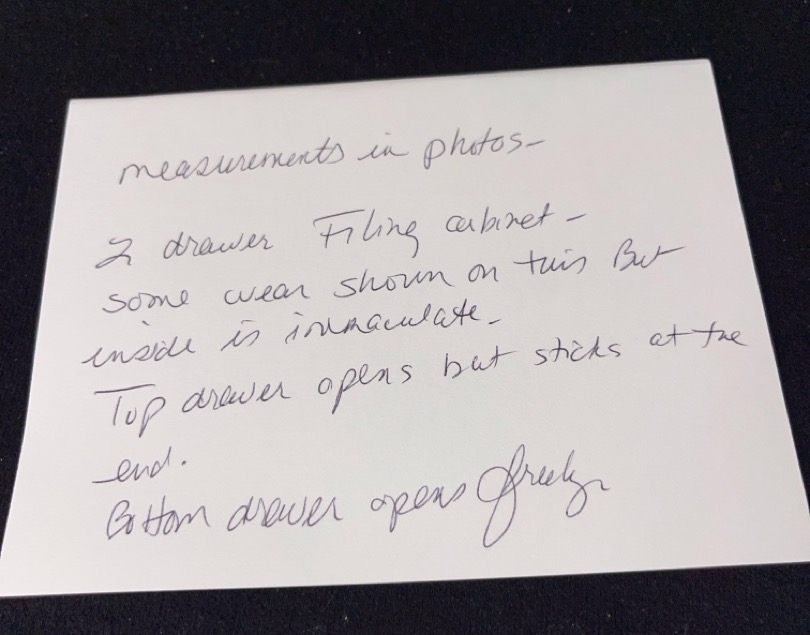 measurements in photos-
2 drawer Filing cabinet-
some wear shown on this But
inside is immaculate-
Top drawer opens but sticks at the
end.
Bottom drawer opens freely